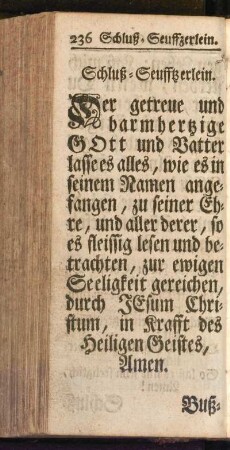 236 Schluß-Seuffzerlein.
Schluß-Seufftzerlein.
Der getreue und
barmhertzige
GOtt und Vatter
lasse es alles, wie es in
seinem Namen ange-
fangen, zu seiner Eh-
re, und aller derer, so
es fleissig lesen und be-
trachten, zur ewigen
Seeligkeit gereichen,
durch JEsum Chri-
stum, in Krafft des
Heiligen Geistes,
Amen.
Buß-